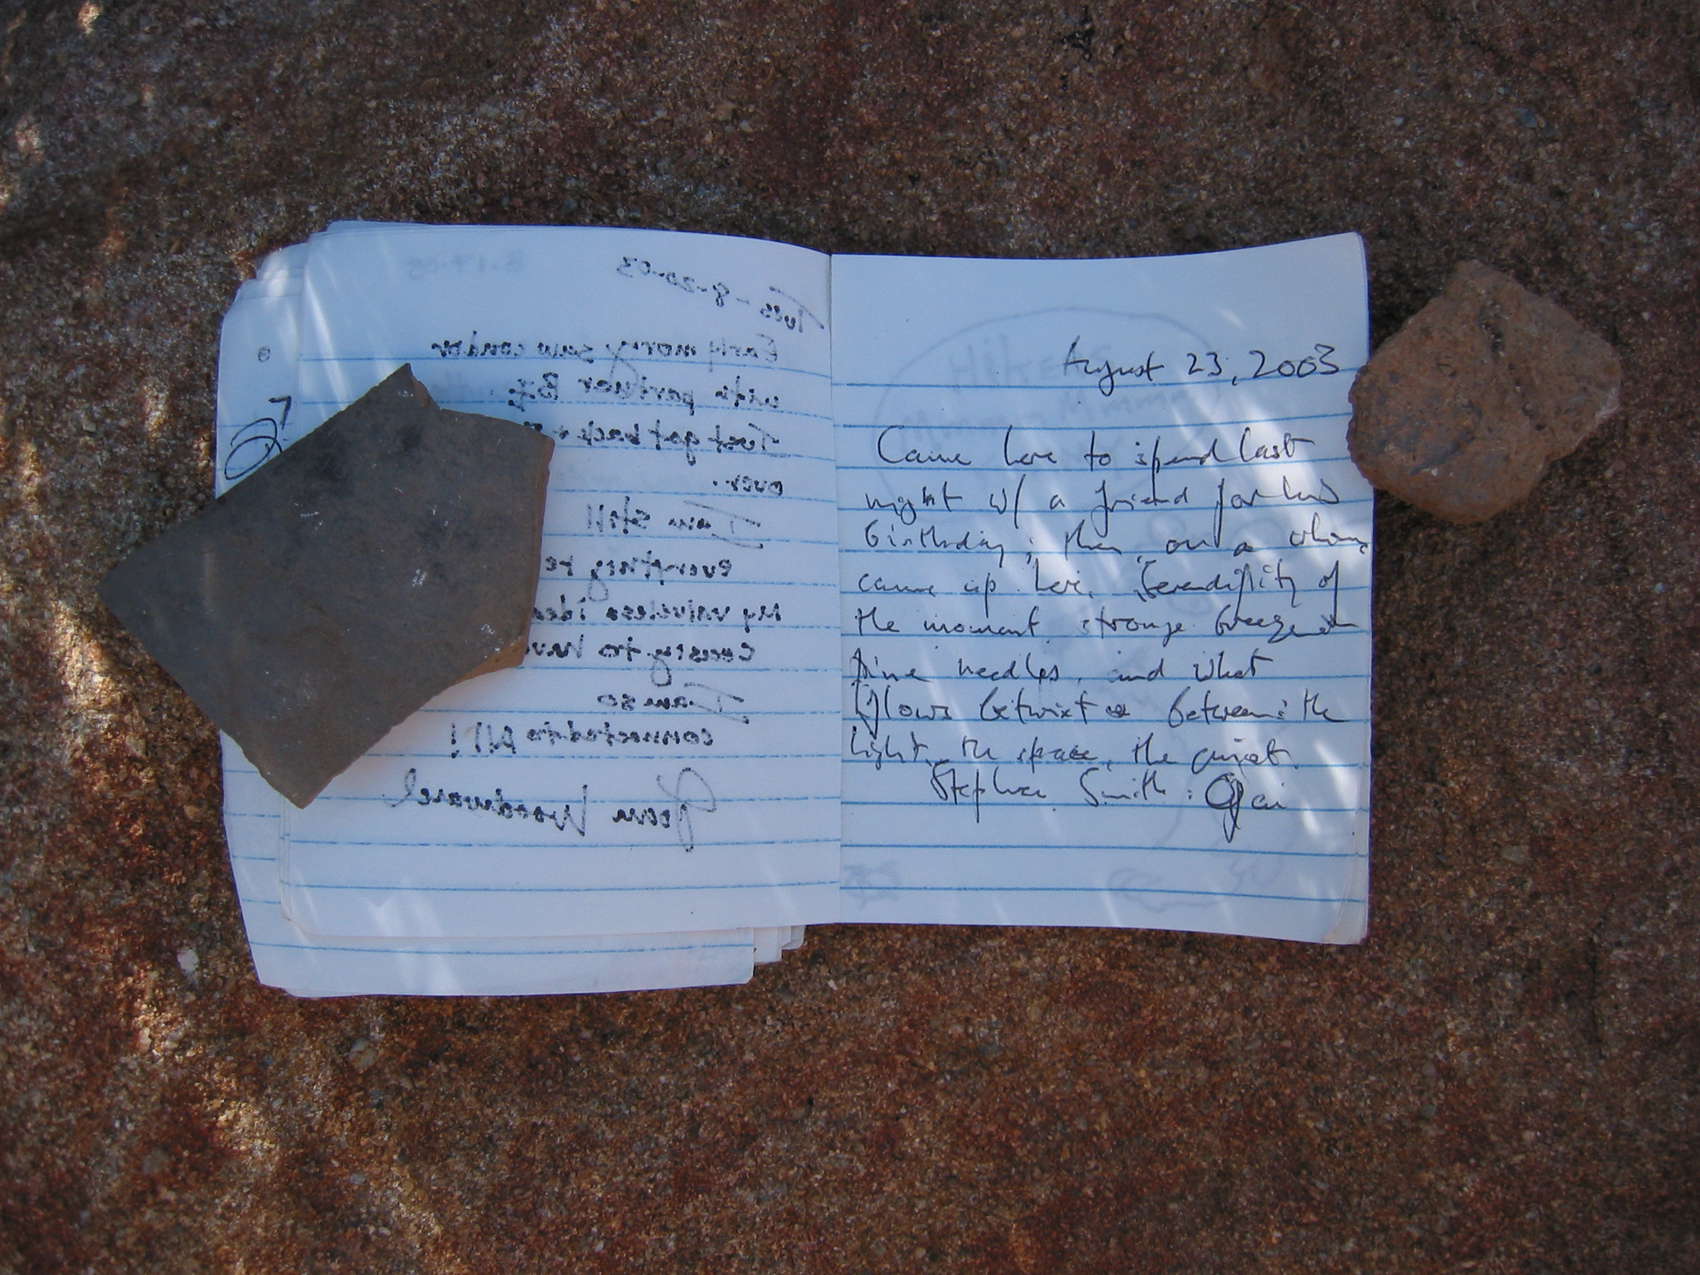 Tues - 8-20-03
Early morng saw condor
with partner Big
Just got back +
over.
I am still
everything re
My valueless idea
County to have
I am so
connected to All!
Joan Woodward
August 23, 2003
Came here to spend last
night w/ a friend for his
birthday; then, on a whim,
came up here. Serendipity of
the moment, strange breeze
pine needles, and what
flows betwixt & between: the
light, the space, the quiet.
Stephen Smith : Ojai